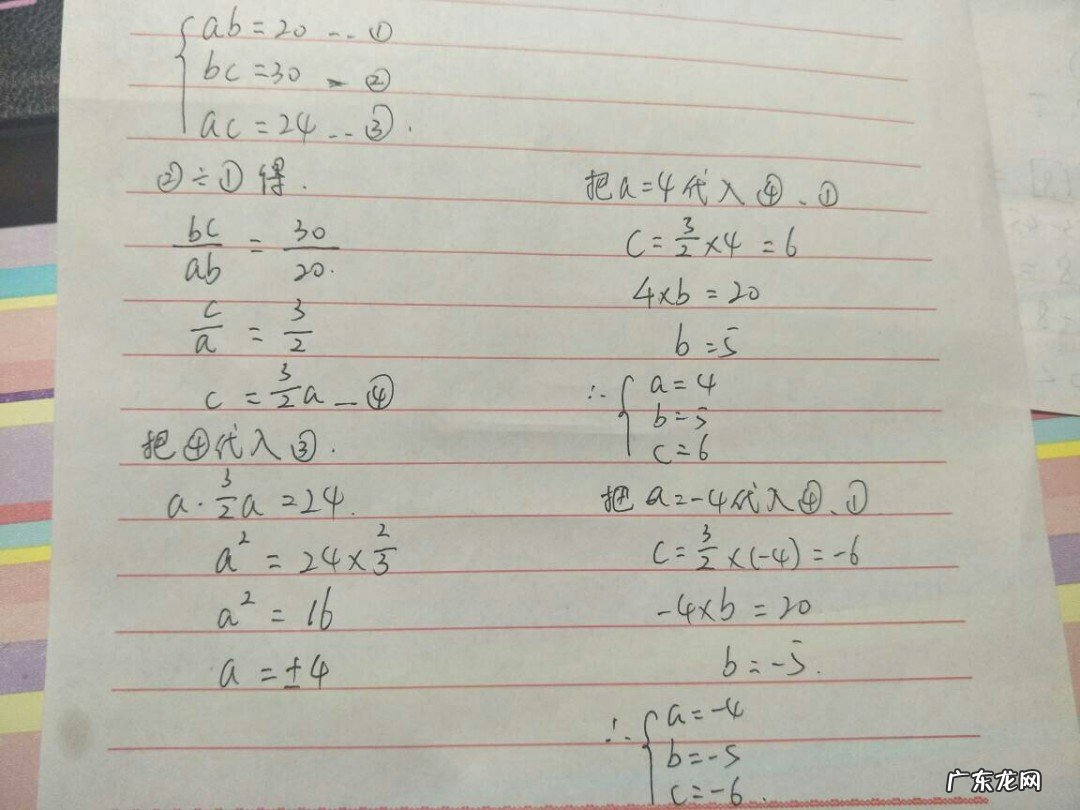 ab=20 -- ①
bc=30 - ②
ac=24 -- ③.
②÷①得.
bc/ab = 30/20.
c/a = 3/2
c = 3/2 a — ④
把④代入③.
a·3/2 a =24.
a² = 24×2/3
a² = 16
a =±4
把a=4代入④、①
c=3/2×4 =6
4×b =20
b =5
∴{a=4
b=5
c=6
把a=-4代入④、①
c=3/2×(-4)=-6
-4×b =20
b=-5.
∴{a=-4
b=-5
c=-6.
广东龙网